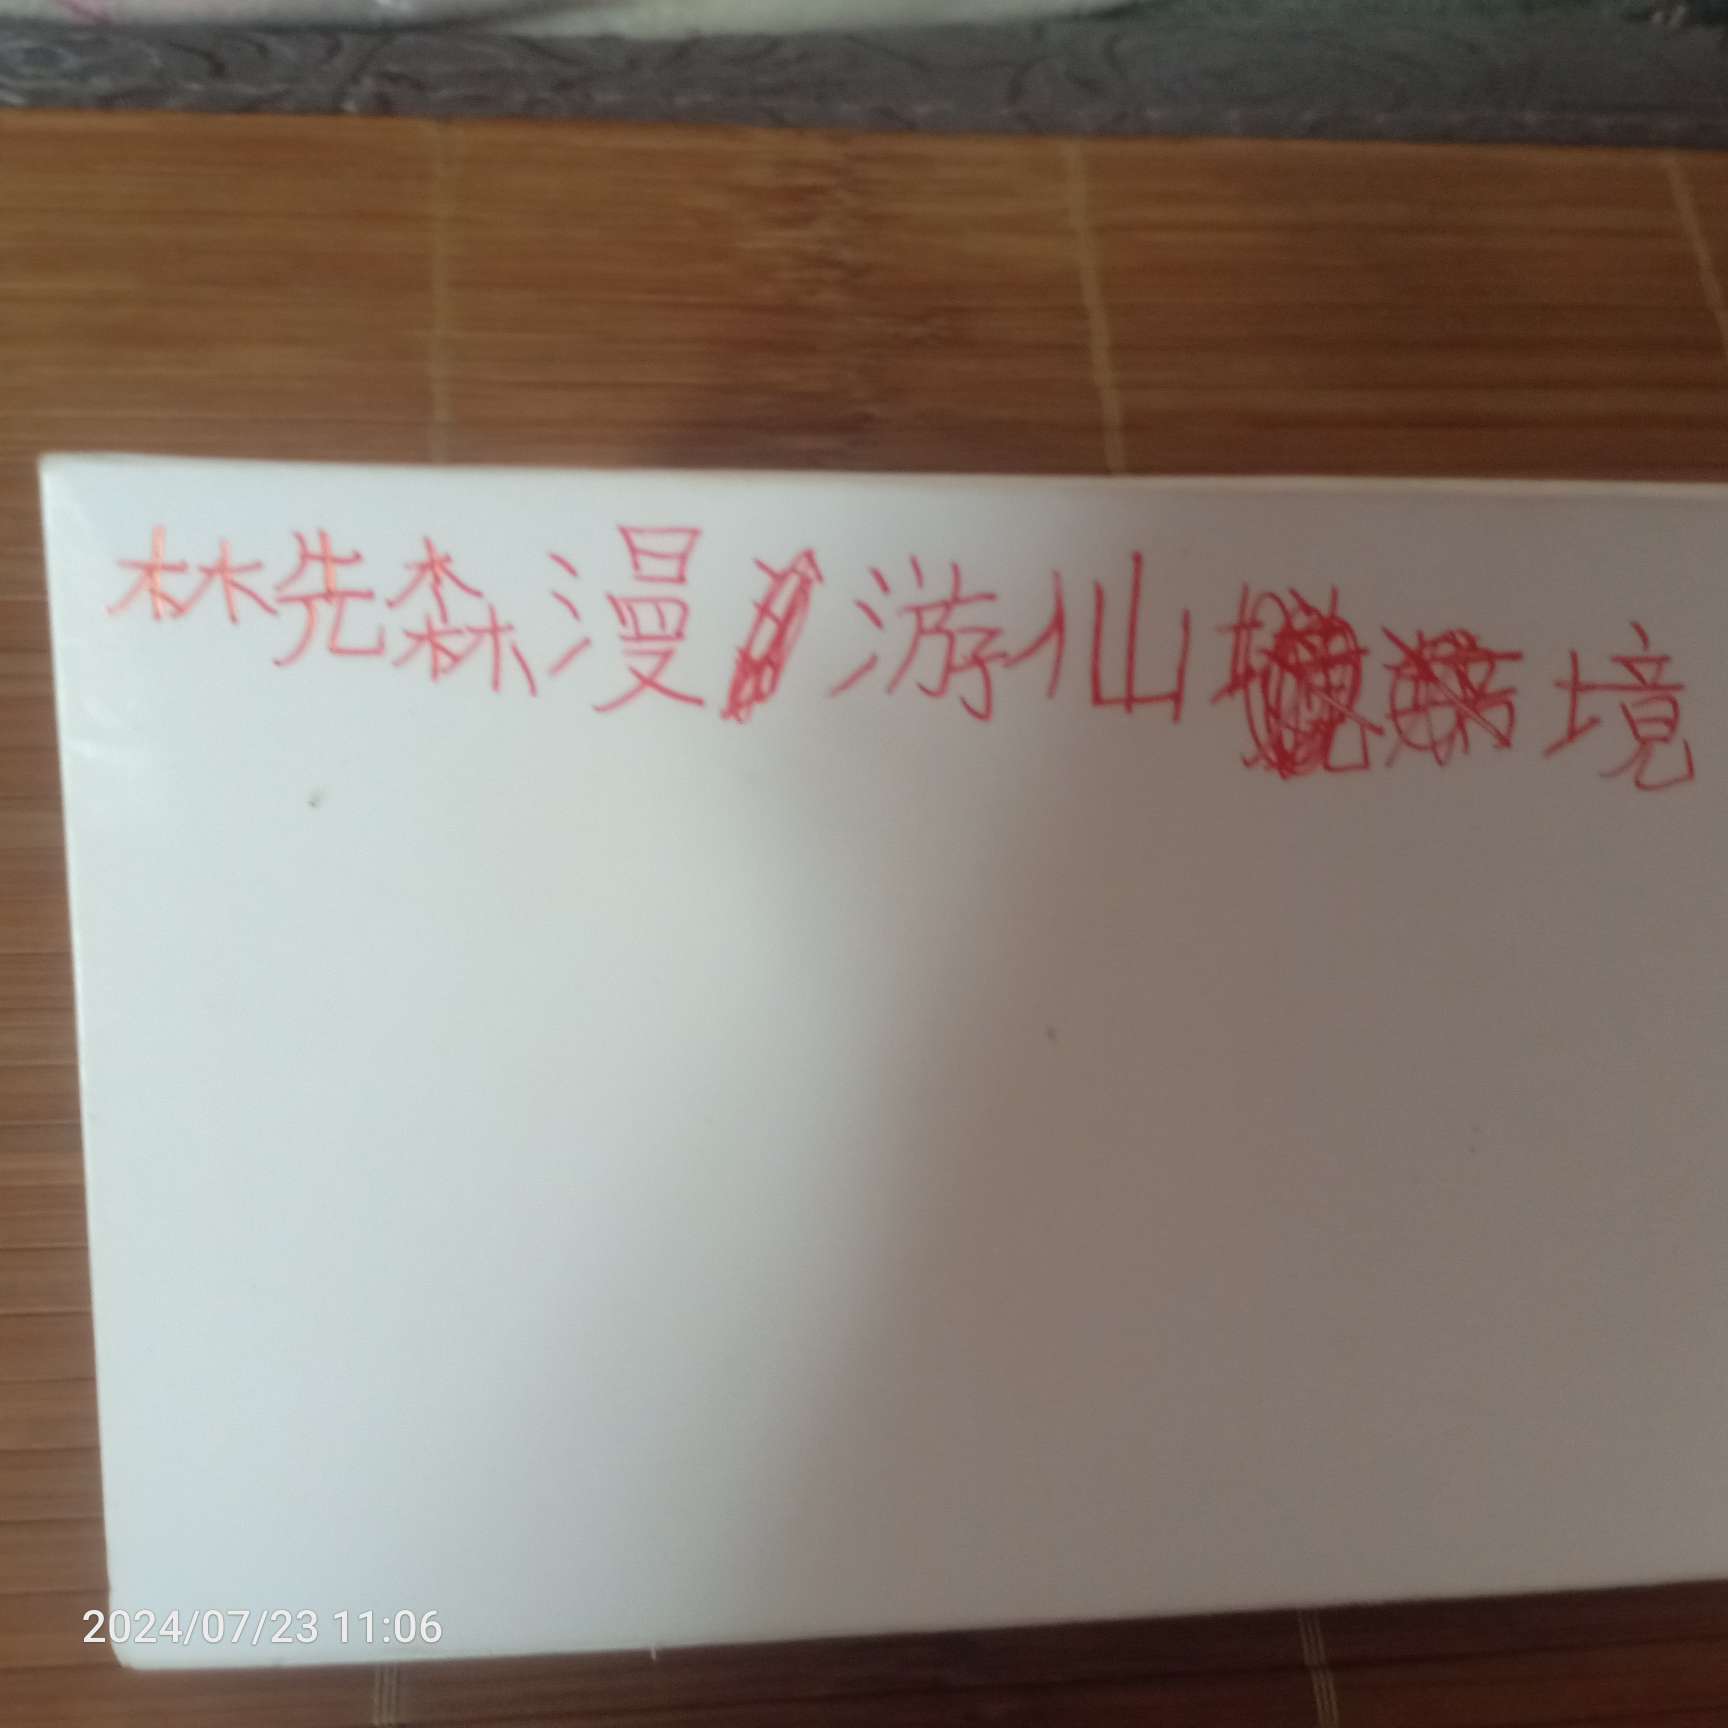 林先森漫游仙境
2024/07/23 11:06